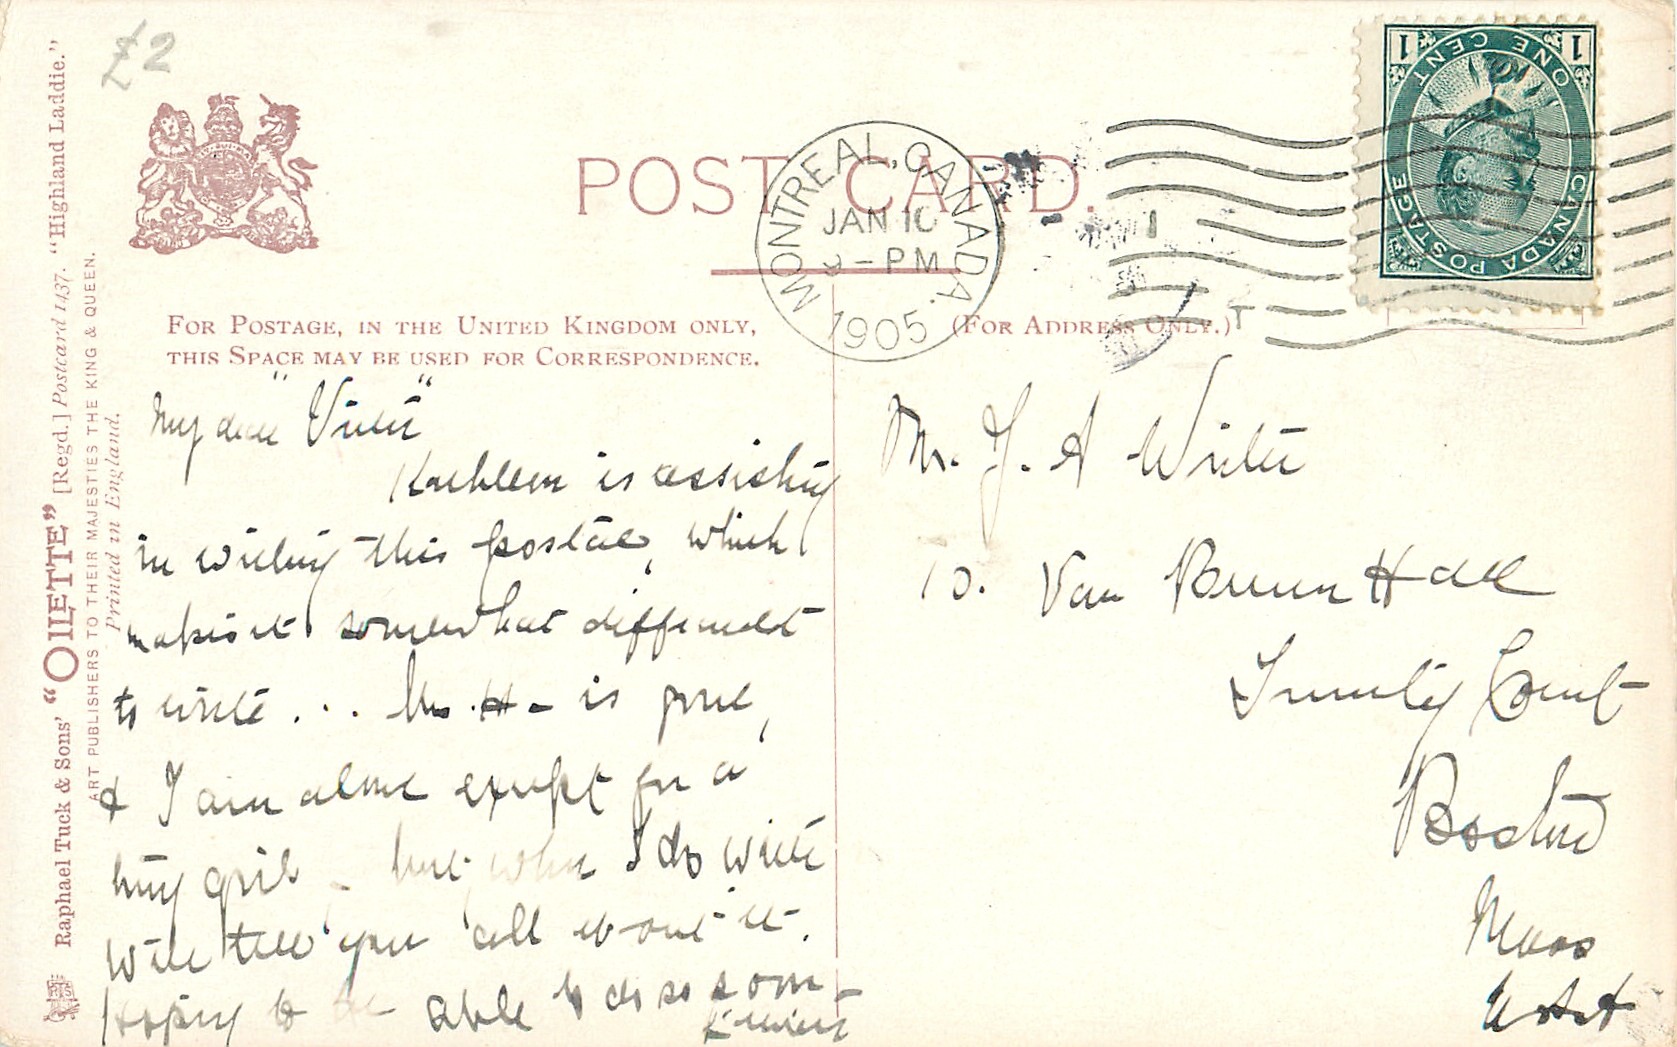 £2
POST CARD.
MONTREAL, CANADA.
JAN 10
9-PM
1905
1 ONE CENT 1
CANADA POSTAGE
FOR POSTAGE, IN THE UNITED KINGDOM ONLY,
THIS SPACE MAY BE USED FOR CORRESPONDENCE.
(FOR ADDRESS ONLY.)
T
Raphael Tuck & Sons' "OILETTE" [Regd.] Postcard 1437. "Highland Laddie."
ART PUBLISHERS TO THEIR MAJESTIES THE KING & QUEEN.
Printed in England.
My dear
Kathleen is assisting
in writing this postal, which
makes it somewhat difficult
to write ... H - is gone,
& I am alone except for a
girl but when I do write
will tell you all about it.
Hoping to be able to do so
Mr. A
10. Van Buren Hall
Trinity Court
Boston
Mass
USA